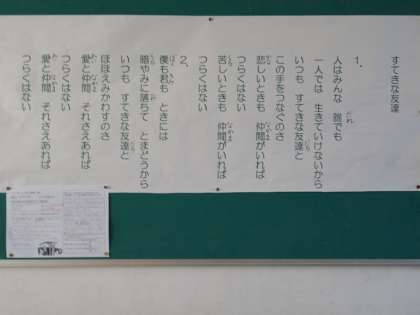 すてきな友達
1.
人はみんな 誰でも
一人では 生きていけないから
いつも すてきな友達と
この手をつなぐのさ
悲しいときも 仲間がいれば
つらくはない
苦しいときも 仲間がいれば
つらくはない
2.
僕も君も ときには
暗やみに落ちて とまどうから
いつも すてきな友達と
ほほえみかわすのさ
愛と仲間 それさえあれば
つらくはない
愛と仲間 それさえあれば
つらくはない